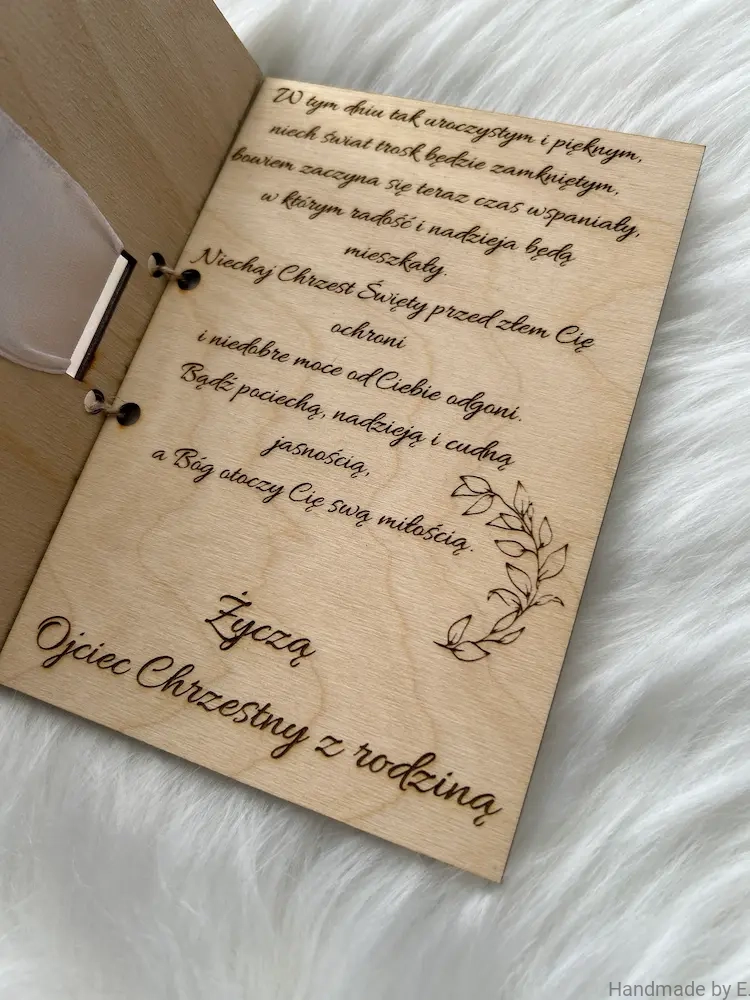 W tym dniu tak uroczystym i pięknym,
niech świat trosk będzie zamkniętym,
bowiem zaczyna się teraz czas wspaniały,
w którym radość i nadzieja będą
mieszkały.
Niechaj Chrzest Święty przed złem Cię
ochroni
i niedobre moce od Ciebie odgoni.
Bądź pociechą, nadzieją i cudną
jasnością,
a Bóg otoczy Cię swą miłością.
Życzą
Ojciec Chrzestny z rodziną
Handmade by E.